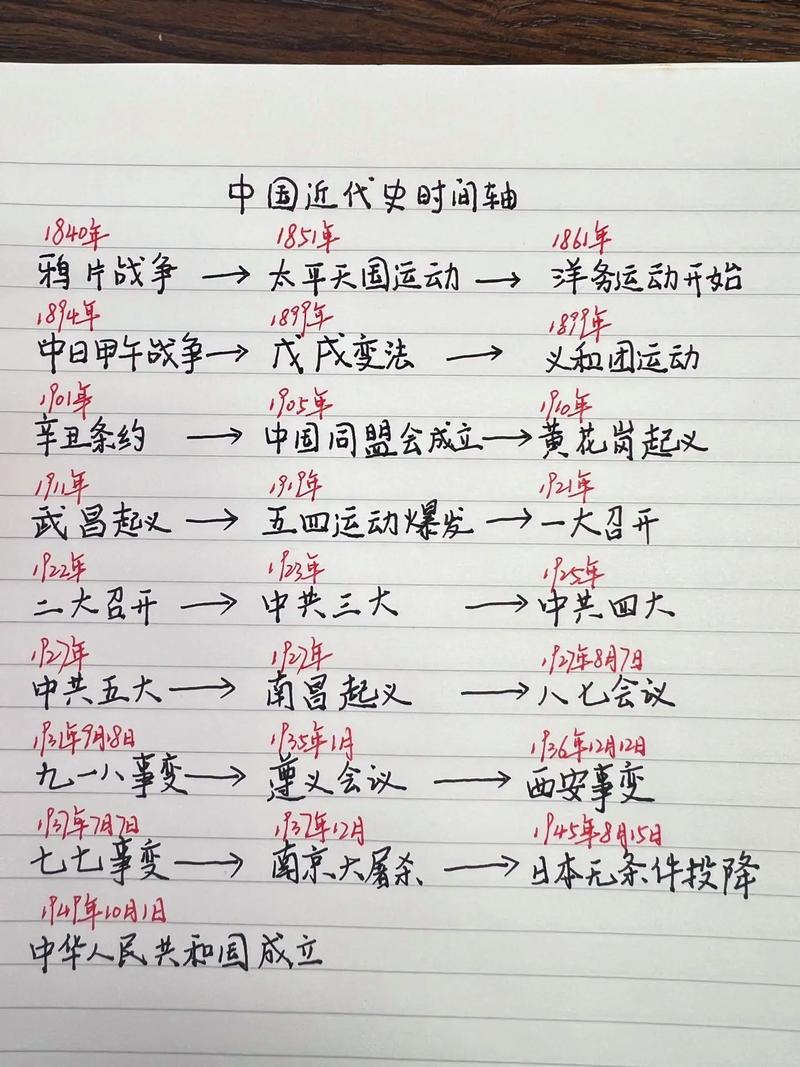 中国近代史时间轴
1840年 1851年 1861年
鸦片战争 → 太平天国运动 → 洋务运动开始
1894年 1899年 1899年
中日甲午战争 → 戊戌变法 → 义和团运动
1901年 1905年 1910年
辛丑条约 → 中国同盟会成立 → 黄花岗起义
1911年 1919年 1921年
武昌起义 → 五四运动爆发 → 一大召开
1922年 1923年 1925年
二大召开 → 中共三大 → 中共四大
1927年 1927年 1927年8月7日
中共五大 → 南昌起义 → 八七会议
1931年9月18日 1935年1月 1936年12月12日
九一八事变 → 遵义会议 → 西安事变
1937年7月7日 1937年12月 1945年8月15日
七七事变 → 南京大屠杀 → 日本无条件投降
1949年10月1日
中华人民共和国成立